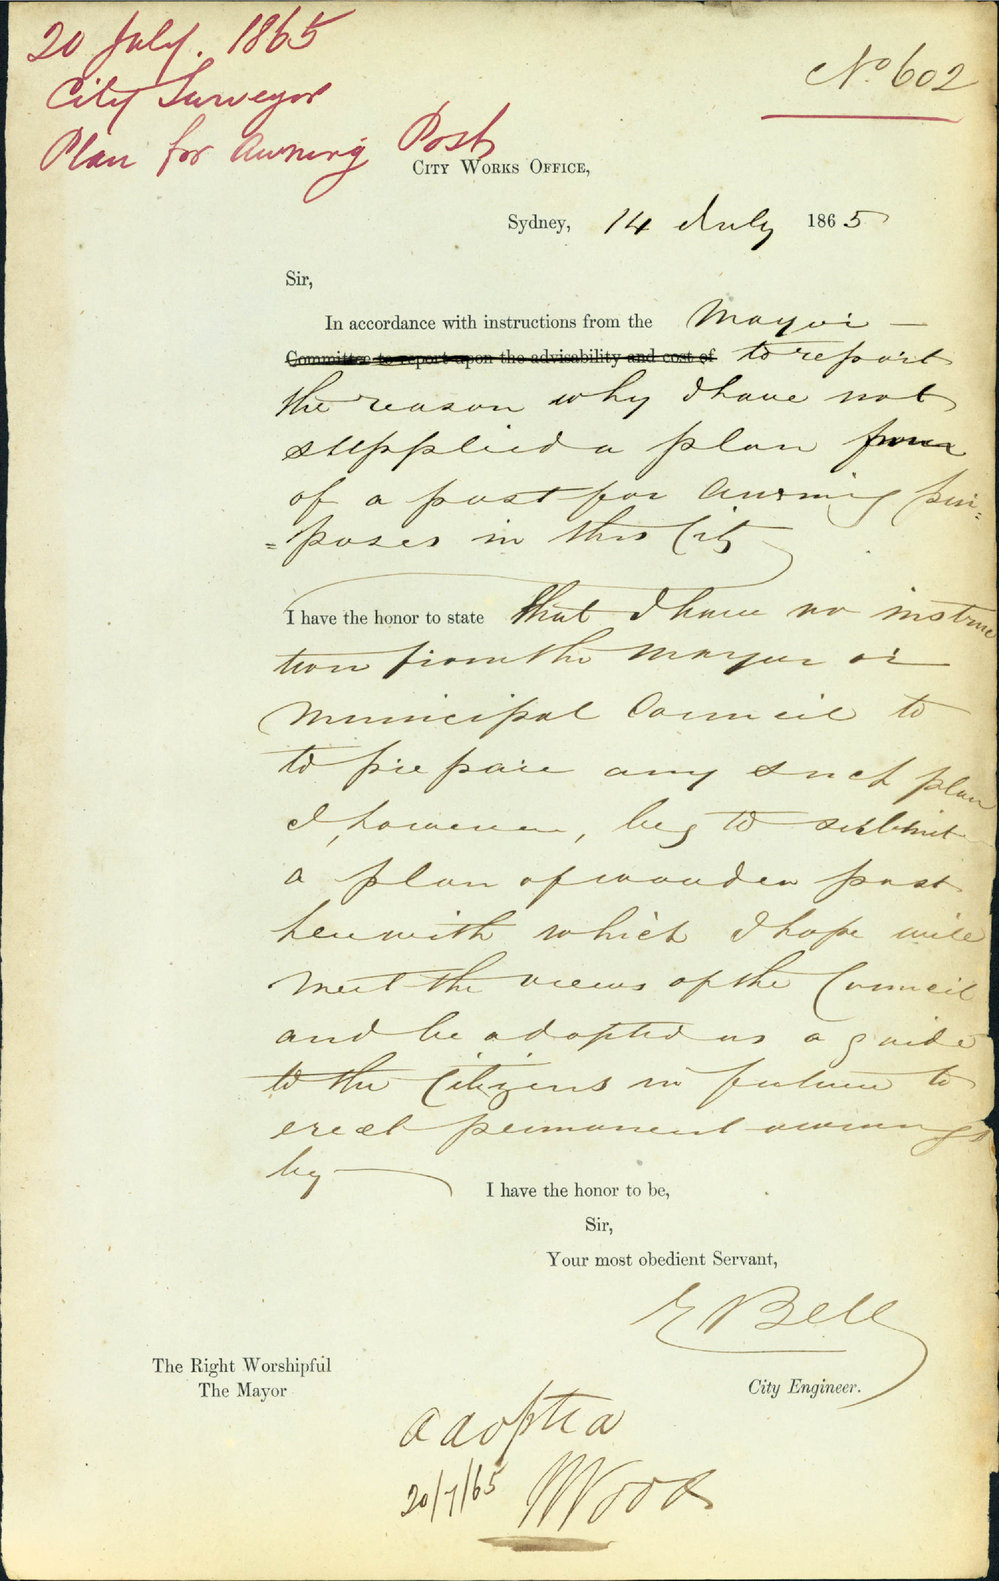 20 July. 1865
City Surveyor
Plan for Awning Post
No 602
City Works Office,
Sydney, 14 July 1865
Sir,
In accordance with instructions from the Mayor —
Committee to report upon the advisability and cost of to report
the reason why I have not
supplied a plan
of a post for Awning pur=
=poses in this City
I have the honor to state that I have no instruc
tion from the Mayor or
Municipal Council to
to prepare any such plan
I, however, beg to submit
a plan of wooden post
herewith which I hope will
meet the views of the Council
and be adopted as a guide
to the Citizens in future to
erect permanent awnings
by —
I have the honor to be,
Sir,
Your most obedient Servant,
E Bell
The Right Worshipful
The Mayor
City Engineer.
Adopted
20/7/65 Wood